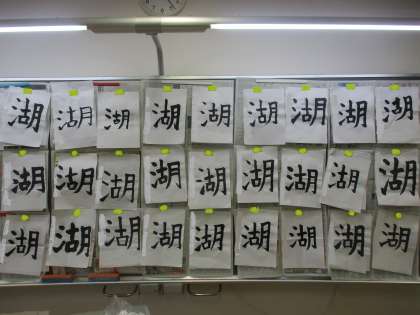 湖 湖 湖 湖 湖 湖 湖 湖 湖
湖 湖 湖 湖 湖 湖 湖 湖 湖
湖 湖 湖 湖 湖 湖 湖 湖 湖